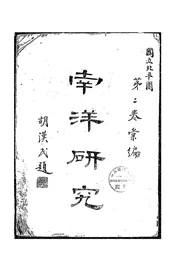 國立北平圖
第二卷彙編
南洋研究
胡漢民題